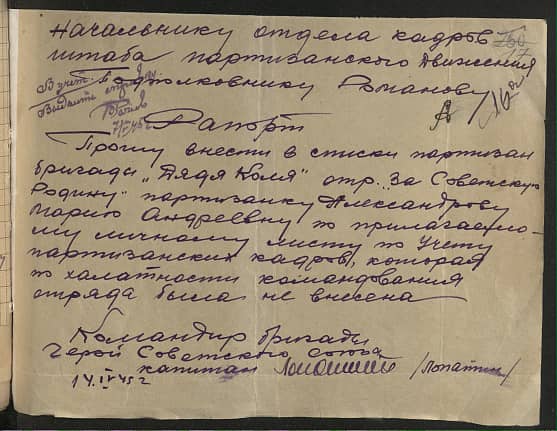 Начальнику отдела кадров
штаба партизанского движения
подполковнику Романову
В учет.
Выдать
Рапорт
Прошу внести в списки партизан
бригады „Дядя Коля" отр. „За Советскую
Родину" партизанку Алессандрову
Марию Андреевну по прилагаемо-
му личному листу по учету
партизанских кадров, которая
по халатности командования
отряда была не внесена
Командир бригады
Герой Советского Союза
капитан /Лопатин/
14.IV 45 г